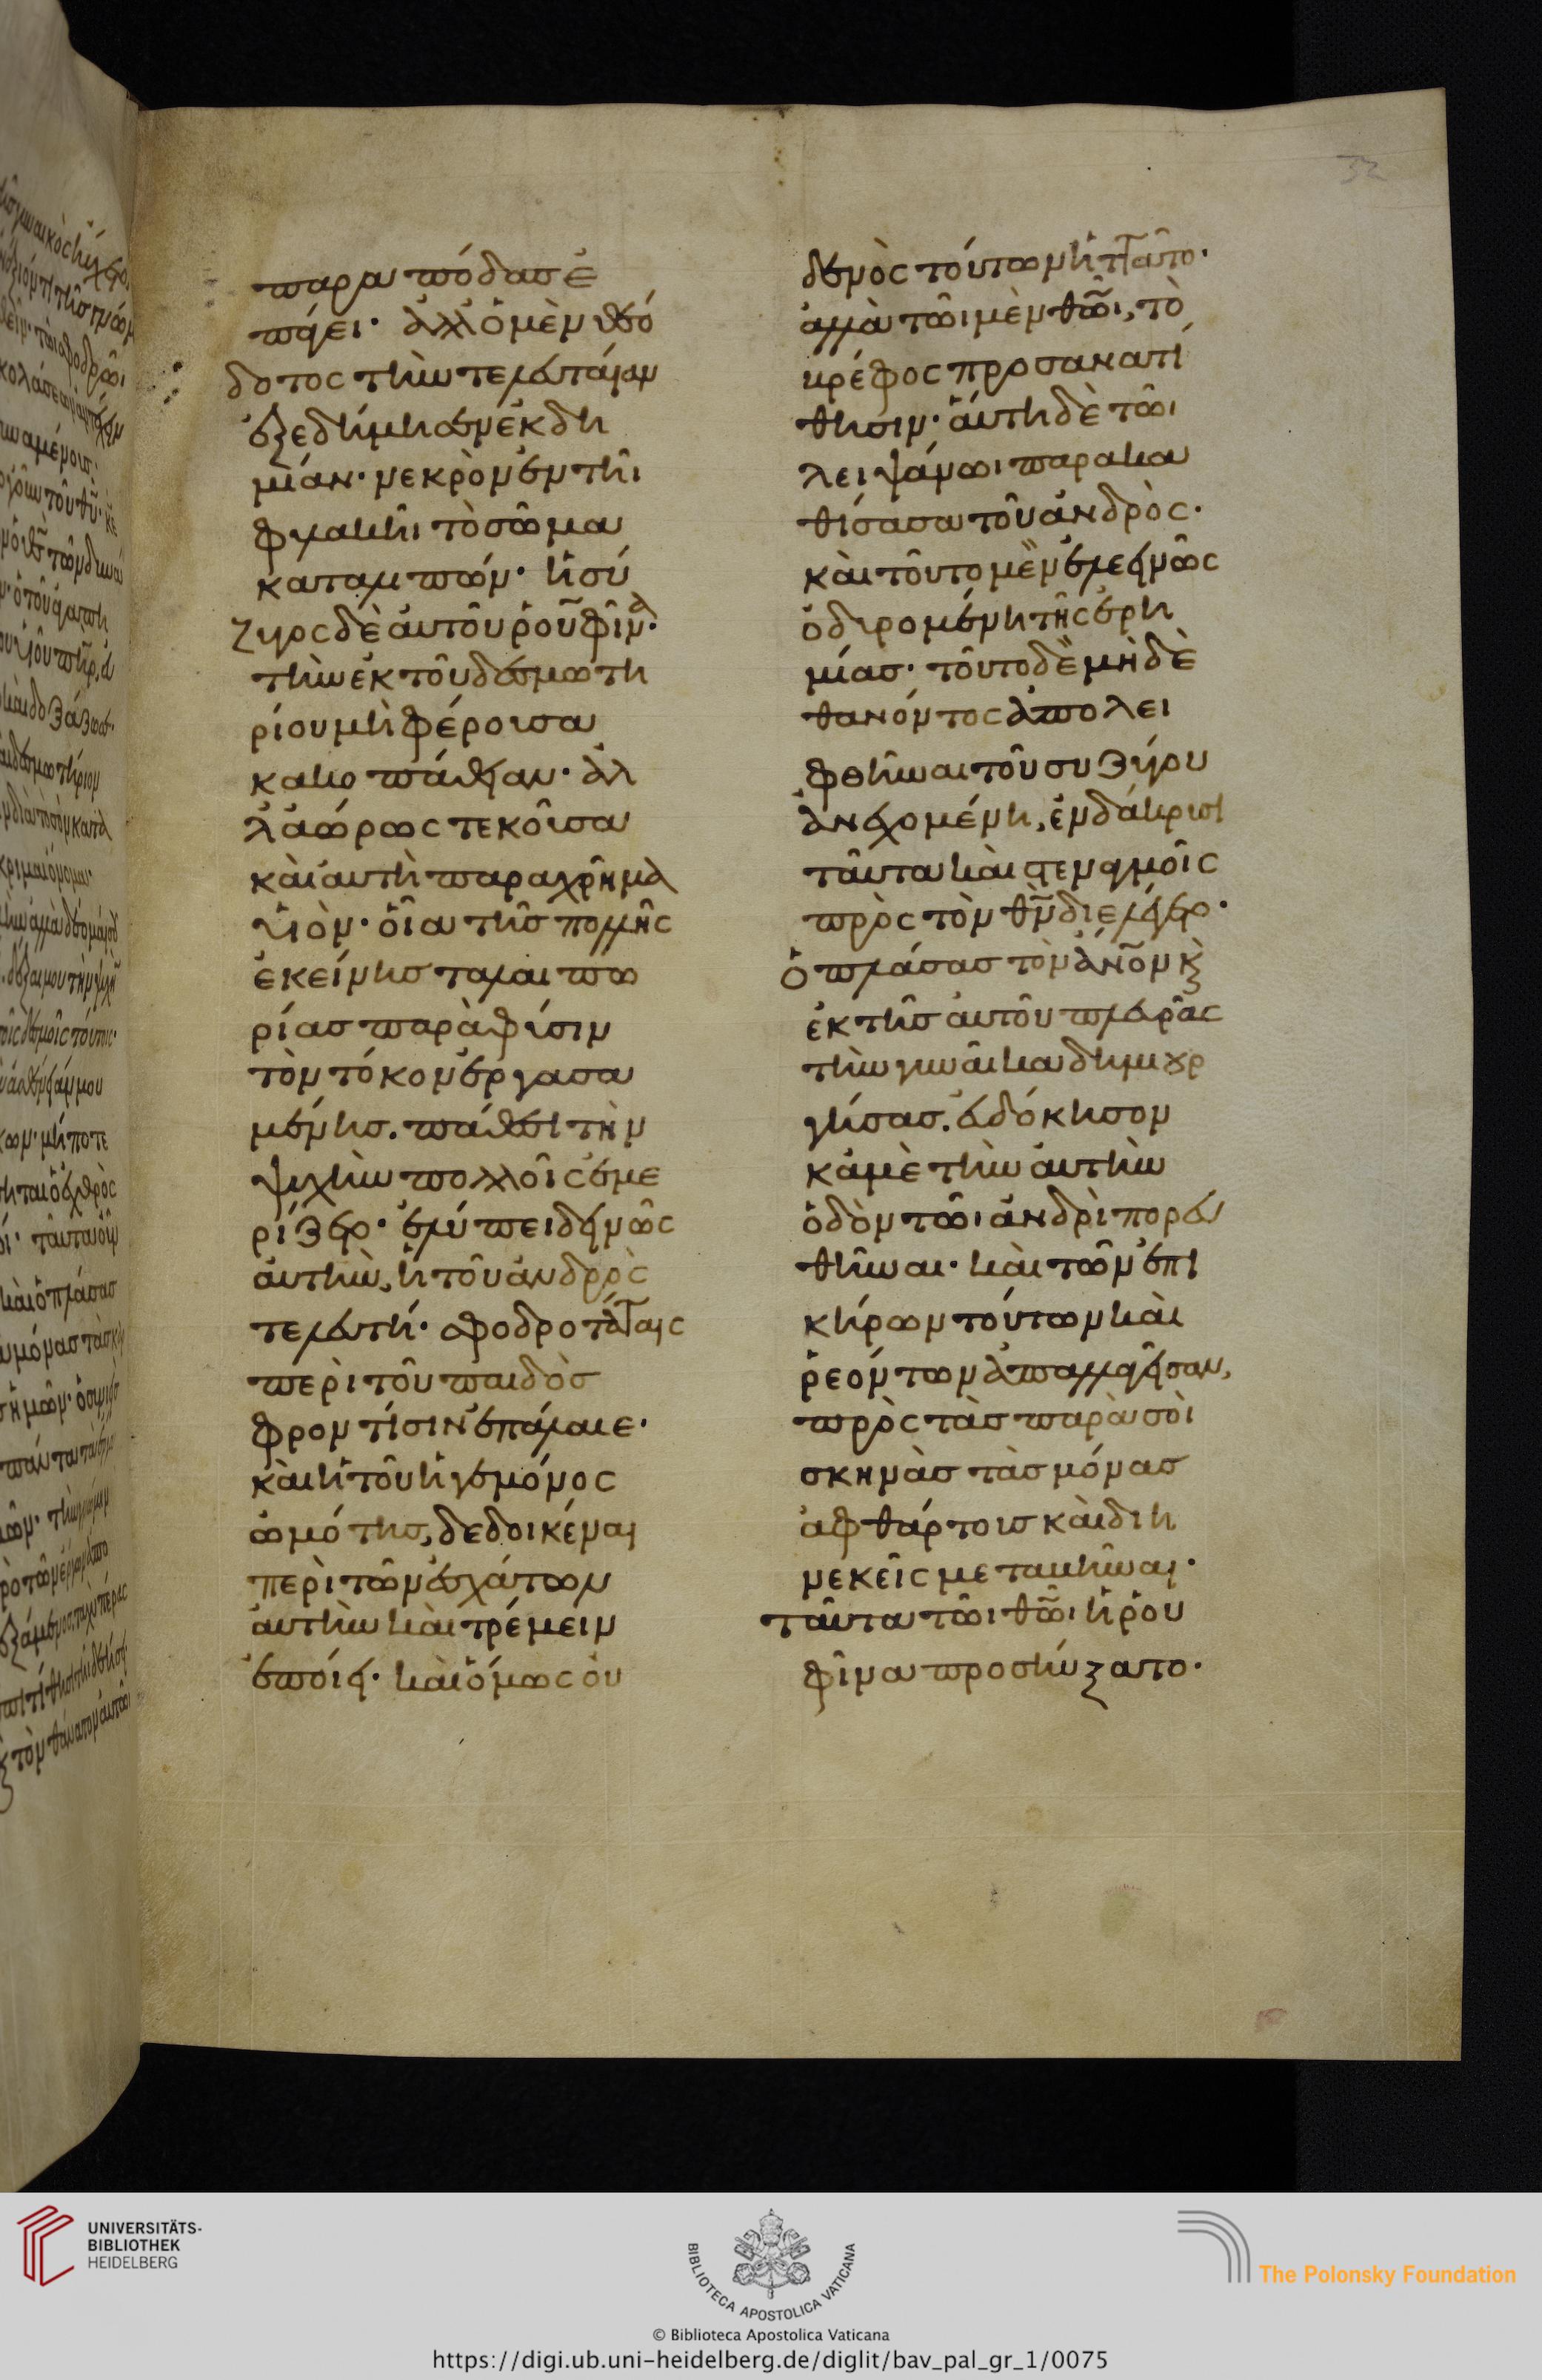 32
παρα πόδας ἐ
πήει· ἀλλ' ὁ μὲν θεό
δοτος τὴν τελευταίαν
ἐξεδήμησεν ἐκδη
μίαν· νεκρὸν ἐν τῆι
φυλακῆι τὸ σῶμα
καταλιπών· ἡ σύ
ζυγος δὲ αὐτοῦ ῥουφῖνα·
τὴν ἐκ τοῦ δεσμωτη
ρίου μὴ φέρουσα
κακοπάθειαν· ἀλ
λ' ἀώρως τεκοῦσα
καὶ αὐτὴ παραχρῆμα
υἱὸν· οἷα τῆς πολλῆς
ἐκείνης ταλαιπω
ρίας παρὰ φύσιν
τὸν τόκον ἐργασα
μένης. πάθεσι τὴν
ψυχὴν πολλοῖς ἐμε
ρίζετο· ἐλύπει δεινῶς
αὐτὴν, ἡ τοῦ ἀνδρὸς
τελευτή· σφοδροτάταις
περὶ τοῦ παιδὸς
φροντίσιν ἐπάλαιε·
καὶ ἡ τοῦ ἡγεμόνος
ὠμότης, δεδοικέναι
περὶ τῶν ἐσχάτων
αὐτὴν καὶ τρέμειν
ἐποίει· καὶ ὅμως οὐ
δενὸς τούτων ἡττᾶτο·
ἀλλὰ τῶι μὲν θῶι, τὸ
βρέφος προσανατί
θησιν· αὕτη δὲ τῶι
λειψάνωι παρακα
θίσασα τοῦ ἀνδρὸς·
καὶ τοῦτο μὲν ἐλεεινῶς
ὀδυρομένη τῆς ἐρη
μίας· τοῦτο δὲ μὴ δὲ
θανόντος ἀπολει
φθῆναι τοῦ συζύγου
ἀνεχομένη, ἐν δάκρυσι
ταῦτα καὶ στεναγμοῖς
πρὸς τὸν θν̄ διελέγετο·
ὁ πλάσας τὸν ἀνο̄ν κ̀
ἐκ τῆς αὐτοῦ πλευρᾶς
τὴν γυναῖκα δημιουρ
γήσας. εὐδόκησον
κἀμὲ τὴν αὐτὴν
ὁδὸν τῶι ἀνδρὶ πορευ
θῆναι· καὶ τῶν ἐπι
κήρων τούτων καὶ
ῥεόντων ἀπαλλαγεῖσαν,
πρὸς τὰς παρὰ σοὶ
σκηνὰς τὰς μόνας
ἀφθάρτους καὶ διη
νεκεῖς μεταβῆναι·
ταῦτα τῶι θῶι ἡ ῥου
φῖνα προσηύξατο·
UNIVERSITÄTS-
BIBLIOTHEK
HEIDELBERG
BIBLIOTECA APOSTOLICA VATICANA
The Polonsky Foundation
© Biblioteca Apostolica Vaticana
https://digi.ub.uni-heidelberg.de/diglit/bav_pal_gr_1/0075